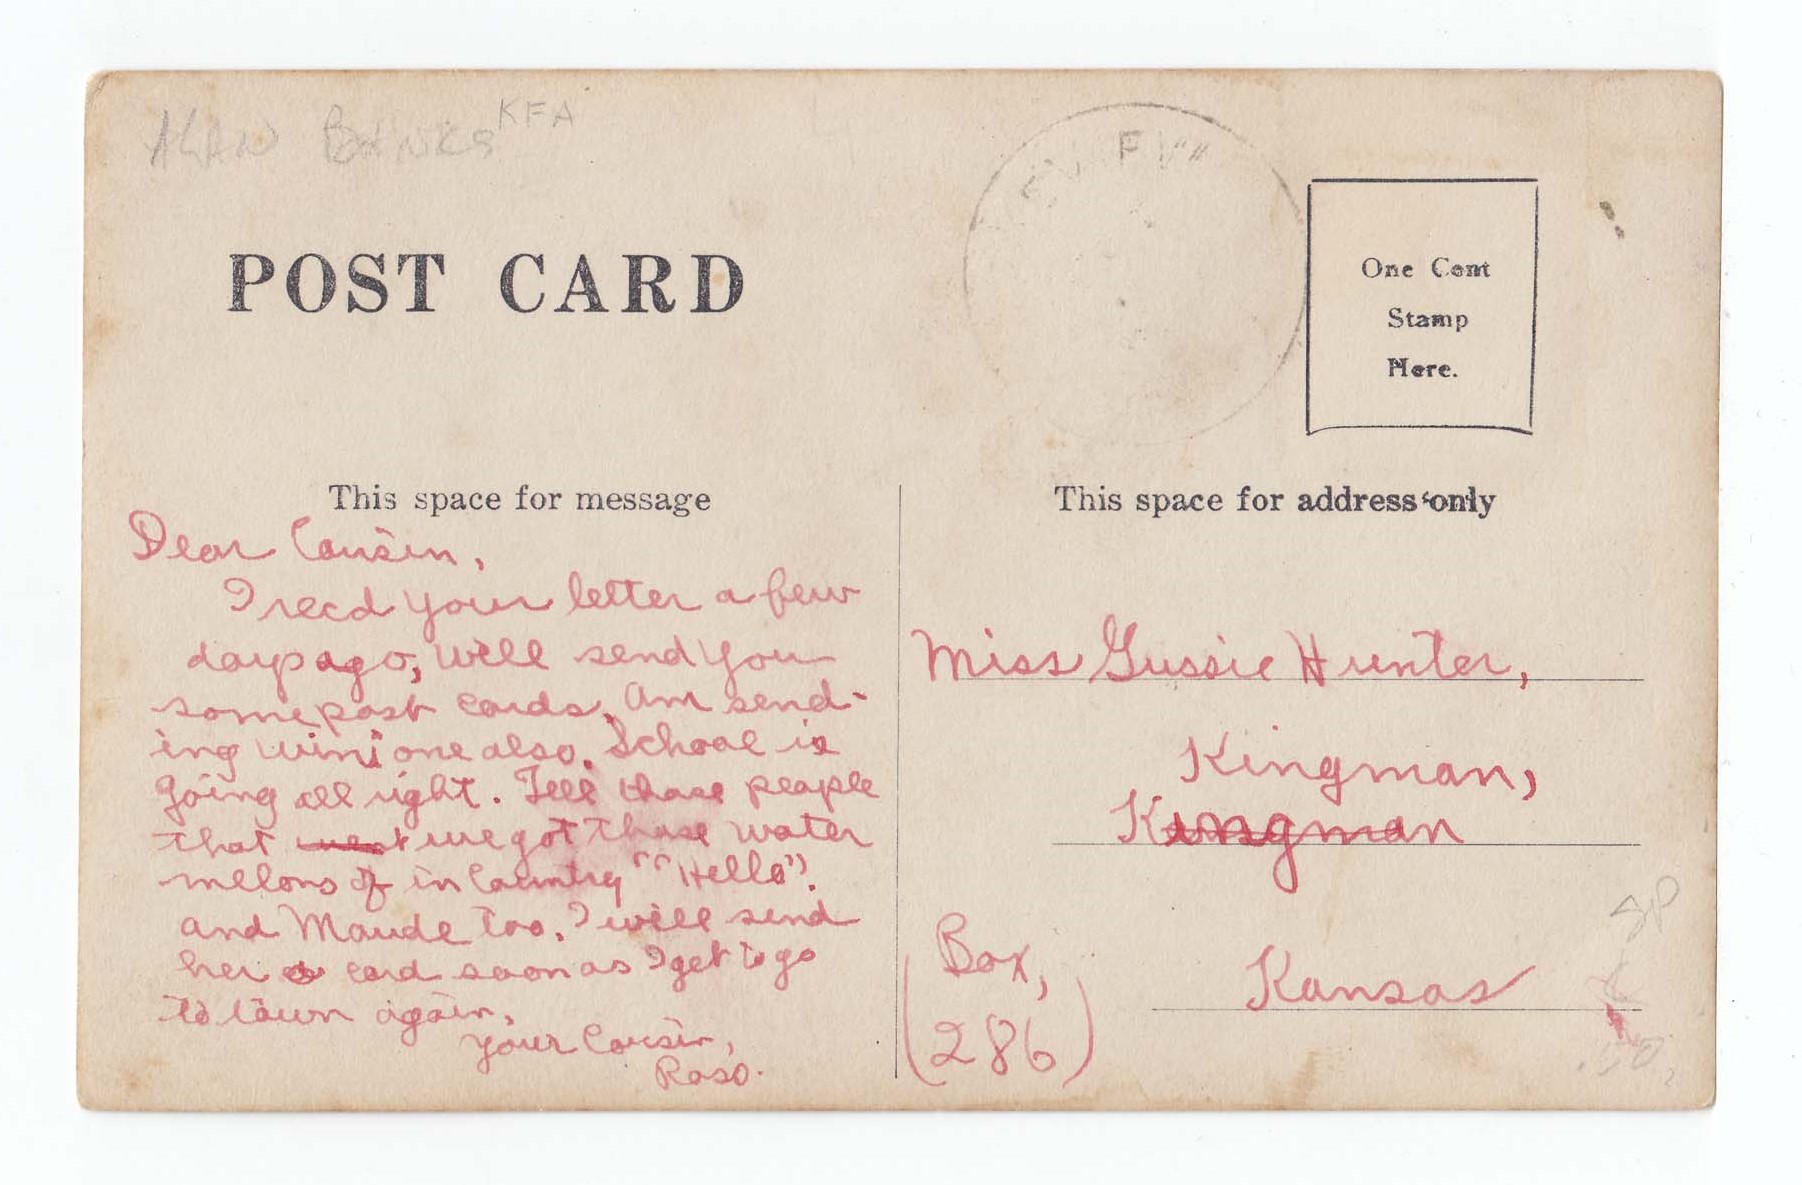 ALAN BANKS KFA
POST CARD
One Cent
Stamp
Here.
This space for message
Dear Cousin,
I recd your letter a few
days ago, will send you
some post cards. Am send-
ing Wini one also. School is
going all right. Tell those people
that we got those water
melons of in Country ""Hello".
and Maude too. I will send
her a card soon as I get to go
to town again,
your Cousin,
This space for address only
Miss Gussie Hunter,
Kingman,
Kingman
Kansas
Box,
(286)